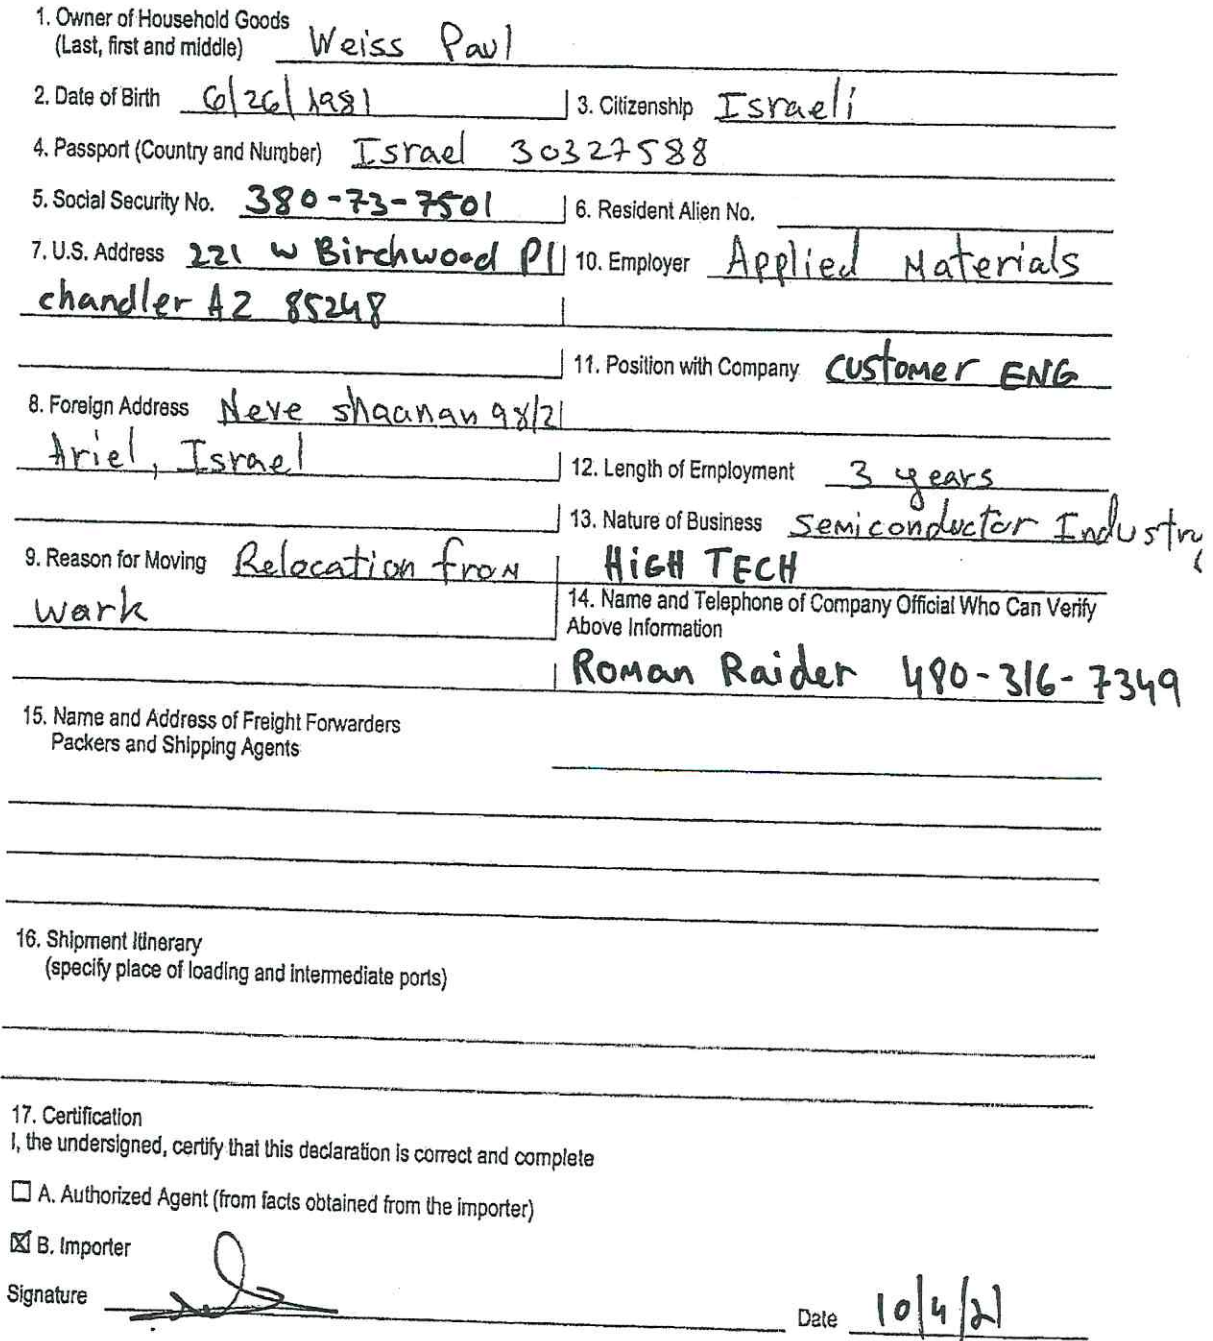 1. Owner of Household Goods
(Last, first and middle) Weiss Paul
2. Date of Birth 6/26/1981 3. Citizenship Israeli
4. Passport (Country and Number) Israel 30327588
5. Social Security No. 380-73-7501 6. Resident Alien No.
7. U.S. Address 221 W Birchwood Pl 10. Employer Applied Materials
chandler AZ 85248
11. Position with Company customer ENG
8. Foreign Address Neve shaanan 98/21
Ariel, Israel 12. Length of Employment 3 years
13. Nature of Business Semiconductor Industry
9. Reason for Moving Relocation from HiGH TECH
work 14. Name and Telephone of Company Official Who Can Verify
Above Information
Roman Raider 480-316-7349
15. Name and Address of Freight Forwarders
Packers and Shipping Agents
16. Shipment Itinerary
(specify place of loading and intermediate ports)
17. Certification
I, the undersigned, certify that this declaration is correct and complete
☐ A. Authorized Agent (from facts obtained from the importer)
☒ B. Importer
Signature Date 10/4/21